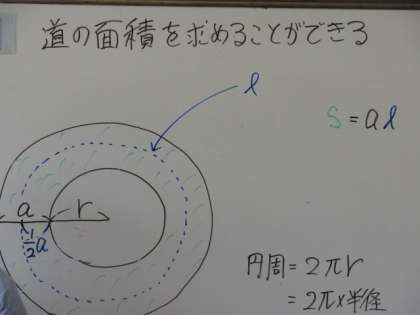 道の面積を求めることができる
ℓ
S = aℓ
a
r
1/2 a
円周 = 2πr
= 2π×半径